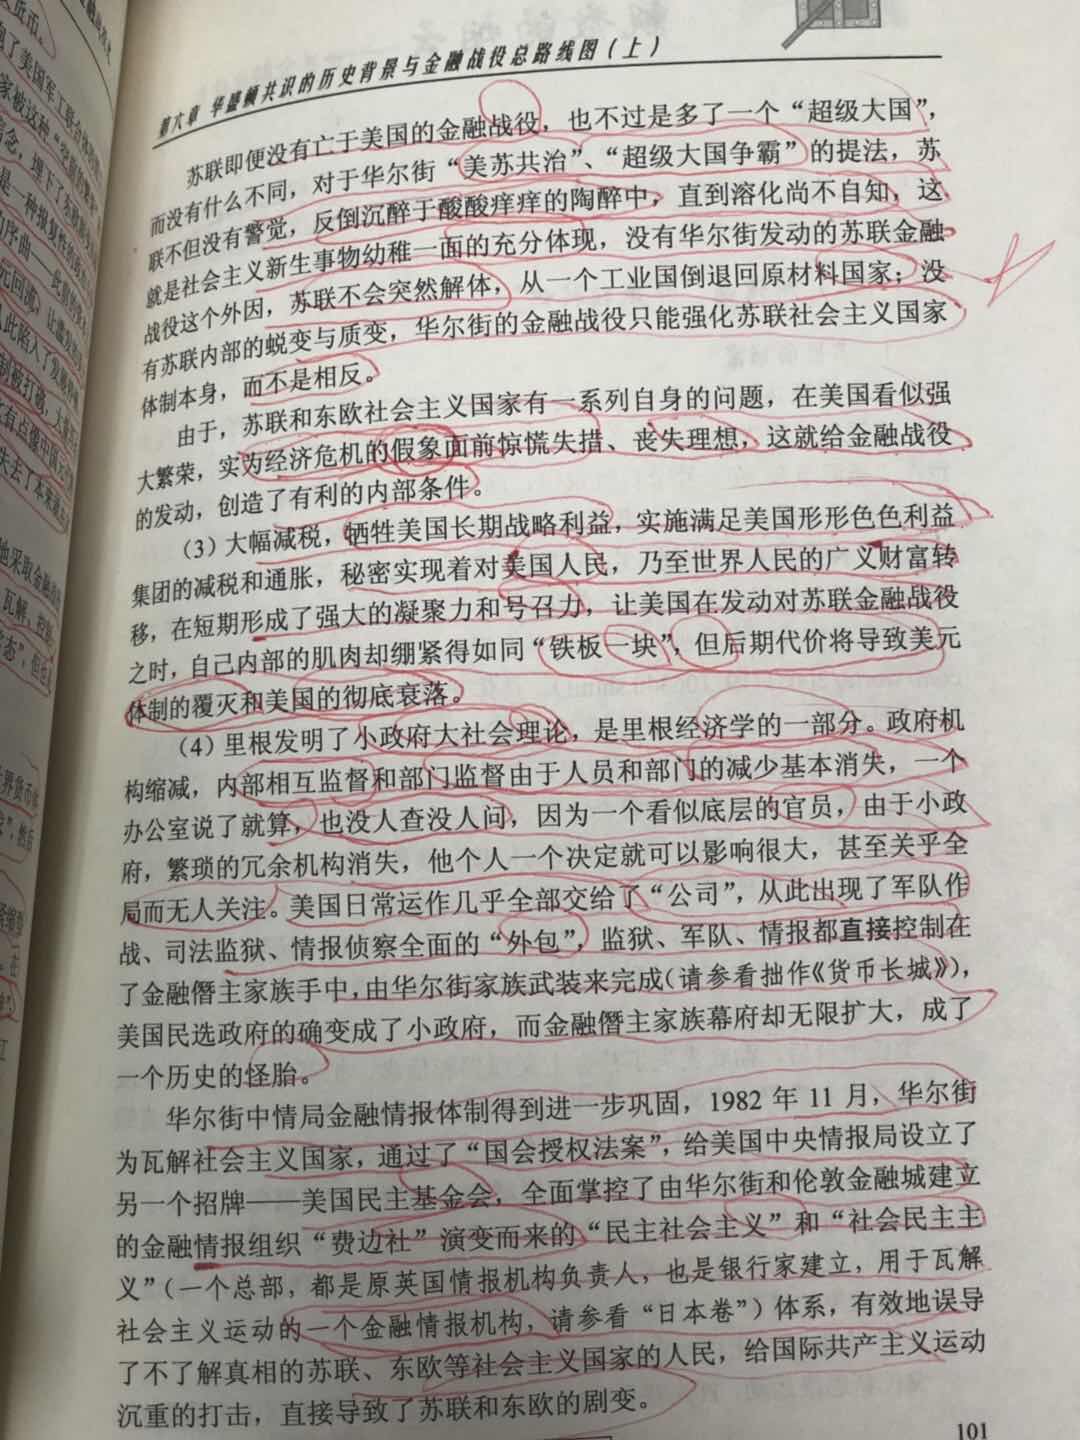 第六章 华盛顿共识的历史背景与金融战役总路线图（上）
苏联即便没有亡于美国的金融战役，也不过是多了一个“超级大国”，
而没有什么不同，对于华尔街“美苏共治”、“超级大国争霸”的提法，苏
联不但没有警觉，反倒沉醉于酸酸痒痒的陶醉中，直到溶化尚不自知，这
就是社会主义新生事物幼稚一面的充分体现，没有华尔街发动的苏联金融
战役这个外因，苏联不会突然解体，从一个工业国倒退回原材料国家；没
有苏联内部的蜕变与质变，华尔街的金融战役只能强化苏联社会主义国家
体制本身，而不是相反。
由于，苏联和东欧社会主义国家有一系列自身的问题，在美国看似强
大繁荣，实为经济危机的假象面前惊慌失措、丧失理想，这就给金融战役
的发动，创造了有利的内部条件。
（3）大幅减税，牺牲美国长期战略利益，实施满足美国形形色色利益
集团的减税和通胀，秘密实现着对美国人民，乃至世界人民的广义财富转
移，在短期形成了强大的凝聚力和号召力，让美国在发动对苏联金融战役
之时，自己内部的肌肉却绷紧得如同“铁板一块”，但后期代价将导致美元
体制的覆灭和美国的彻底衰落。
（4）里根发明了小政府大社会理论，是里根经济学的一部分。政府机
构缩减，内部相互监督和部门监督由于人员和部门的减少基本消失，一个
办公室说了就算，也没人查没人问，因为一个看似底层的官员，由于小政
府，繁琐的冗余机构消失，他个人一个决定就可以影响很大，甚至关乎全
局而无人关注。美国日常运作几乎全部交给了“公司”，从此出现了军队作
战、司法监狱、情报侦察全面的“外包”，监狱、军队、情报都直接控制在
了金融僭主家族手中，由华尔街家族武装来完成（请参看拙作《货币长城》），
美国民选政府的确变成了小政府，而金融僭主家族幕府却无限扩大，成了
一个历史的怪胎。
华尔街中情局金融情报体制得到进一步巩固，1982 年 11 月，华尔街
为瓦解社会主义国家，通过了“国会授权法案”，给美国中央情报局设立了
另一个招牌——美国民主基金会，全面掌控了由华尔街和伦敦金融城建立
的金融情报组织“费边社”演变而来的“民主社会主义”和“社会民主主
义”（一个总部，都是原英国情报机构负责人，也是银行家建立，用于瓦解
社会主义运动的一个金融情报机构，请参看“日本卷”）体系，有效地误导
了不了解真相的苏联、东欧等社会主义国家的人民，给国际共产主义运动
沉重的打击，直接导致了苏联和东欧的剧变。
101